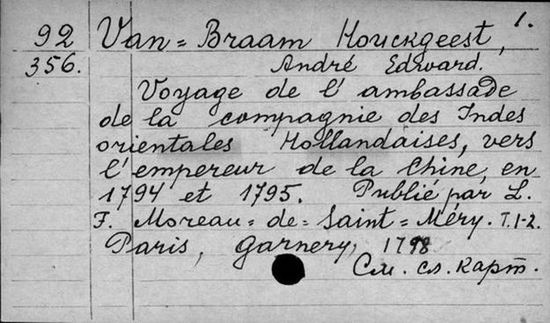 1.
92 Van=Braam Houckgeest,
356. André Edward.
Voyage de l'ambassade
de la compagnie des Indes
orientales Hollandaises, vers
l'empereur de la Chine, en
1794 et 1795. Publié par L.
F. Moreau=de=Saint=Méry. T.1-2.
Paris, Garnery, 1798
См. сл. карт.